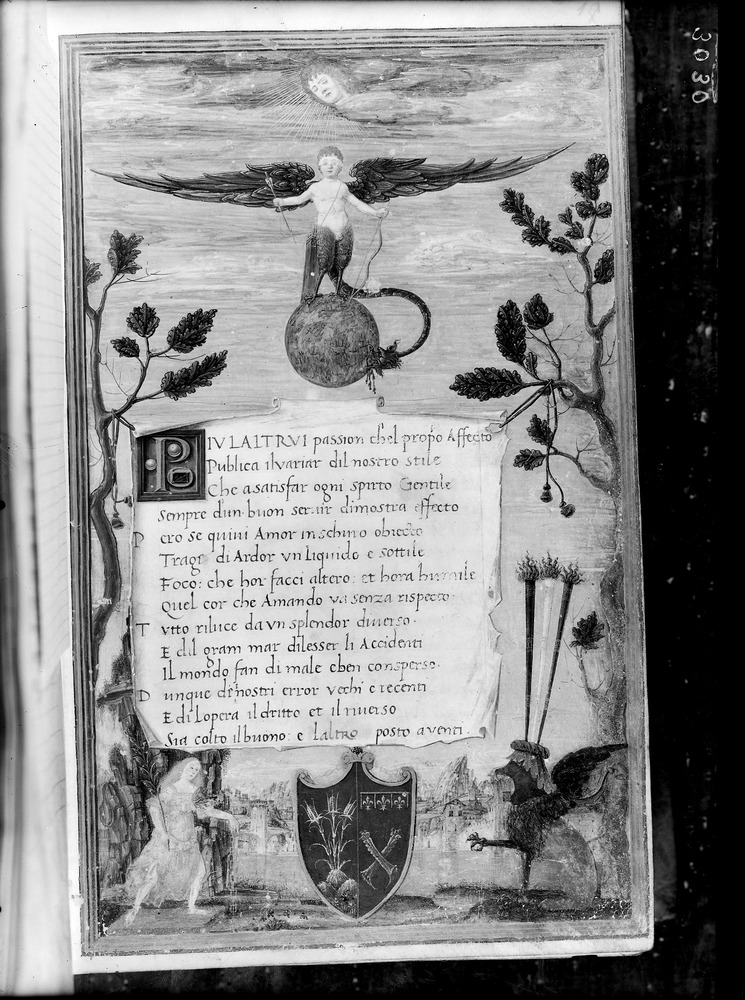 PIV LALTRVI passion ch'el propo Affecto
Publica il variar dil nostro stile
Che a satisfar ogni spirto Gentile
Sempre d'un buon seruir dimostra effecto
Pero se quiui Amor in schiuo obiecto
Trage di Ardor vn liquido e sottile
Foco: che hor facci altero: et hora humile
Quel cor che Amando va senza rispecto.
Tvtto riluce da vn splendor diuerso.
E dil gram mar dilesser li Accidenti
Il mondo fan di male e ben consperso.
Dunque di nostri error vechi e recenti
E di lopera il dritto et il riuerso
Sia colto il buono: e laltro posto a venti.
3030